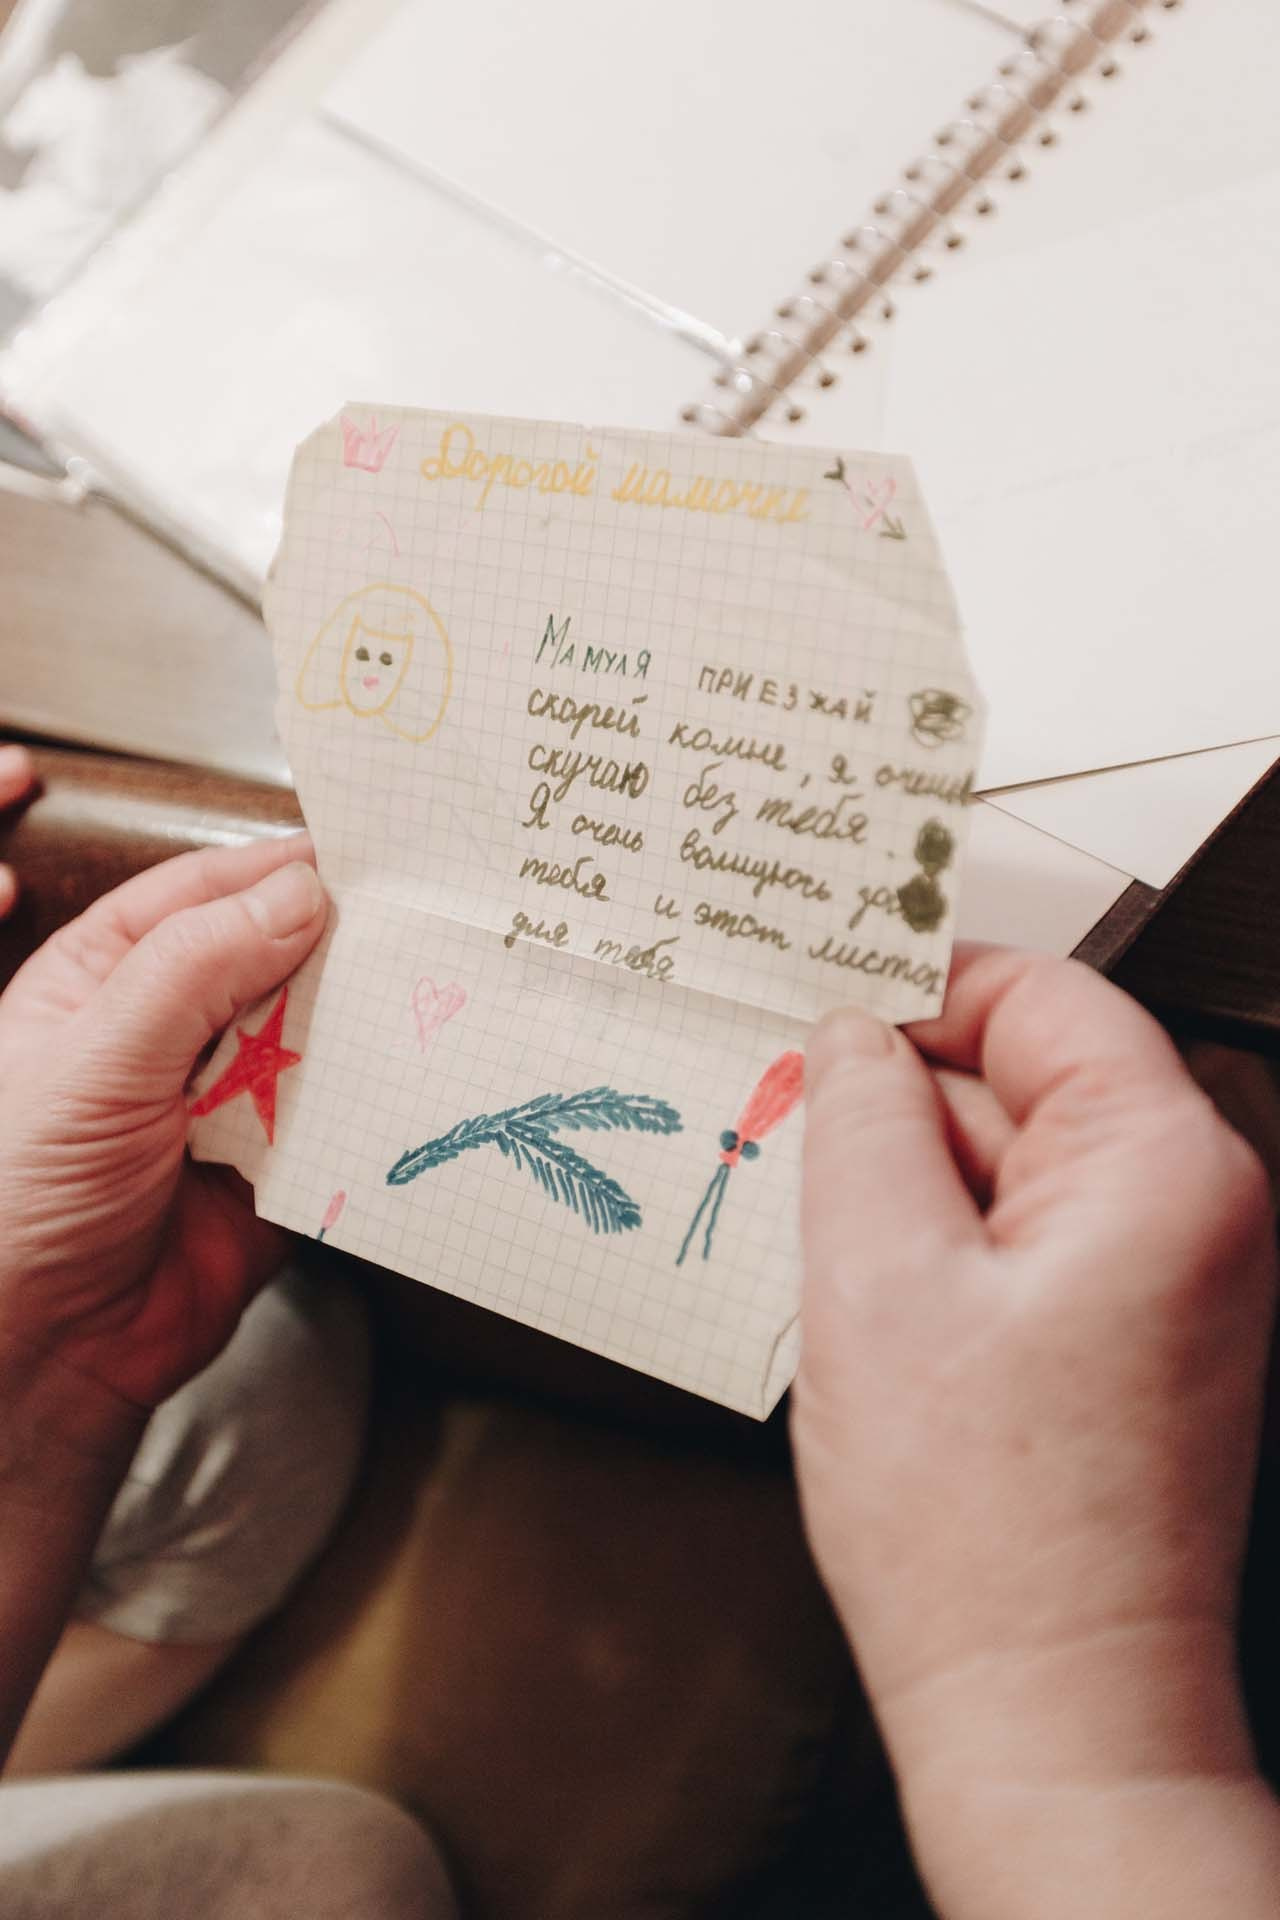 Дорогой мамочке
Мамуля приезжай
скорей комне, я очень
скучаю без тебя.
Я очень волнуюсь за
тебя и этот листок
для тебя